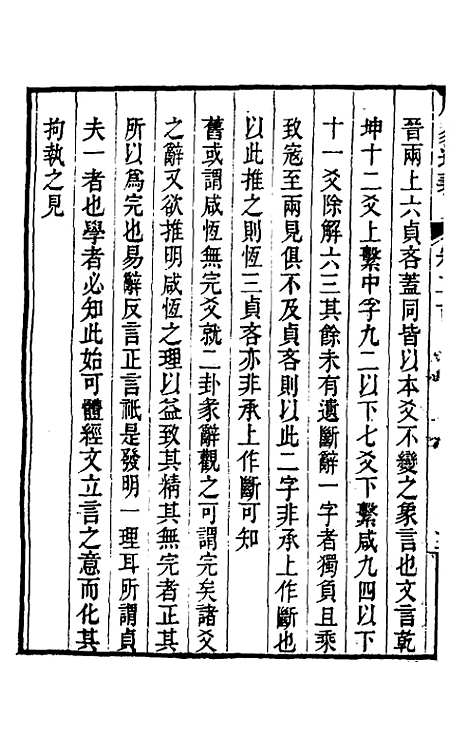 晉兩上六貞吝蓋同皆以本爻不變之象言也文言乾
坤十二爻上繫中孚九二以下七爻下繫咸九四以下
十一爻除解六三其餘未有遺斷辭一字者獨負且乘
致寇至兩見俱不及貞吝則以此二字非承上作斷也
以此推之則恆三貞吝亦非承上作斷可知
舊或謂咸恆無完爻就二卦彖辭觀之可謂完矣諸爻
之辭又欲推明咸恆之理以益致其精其無完者正其
所以爲完也易辭反言正言祇是發明一理耳所謂貞
夫一者也學者必知此始可體經文立言之意而化其
拘執之見